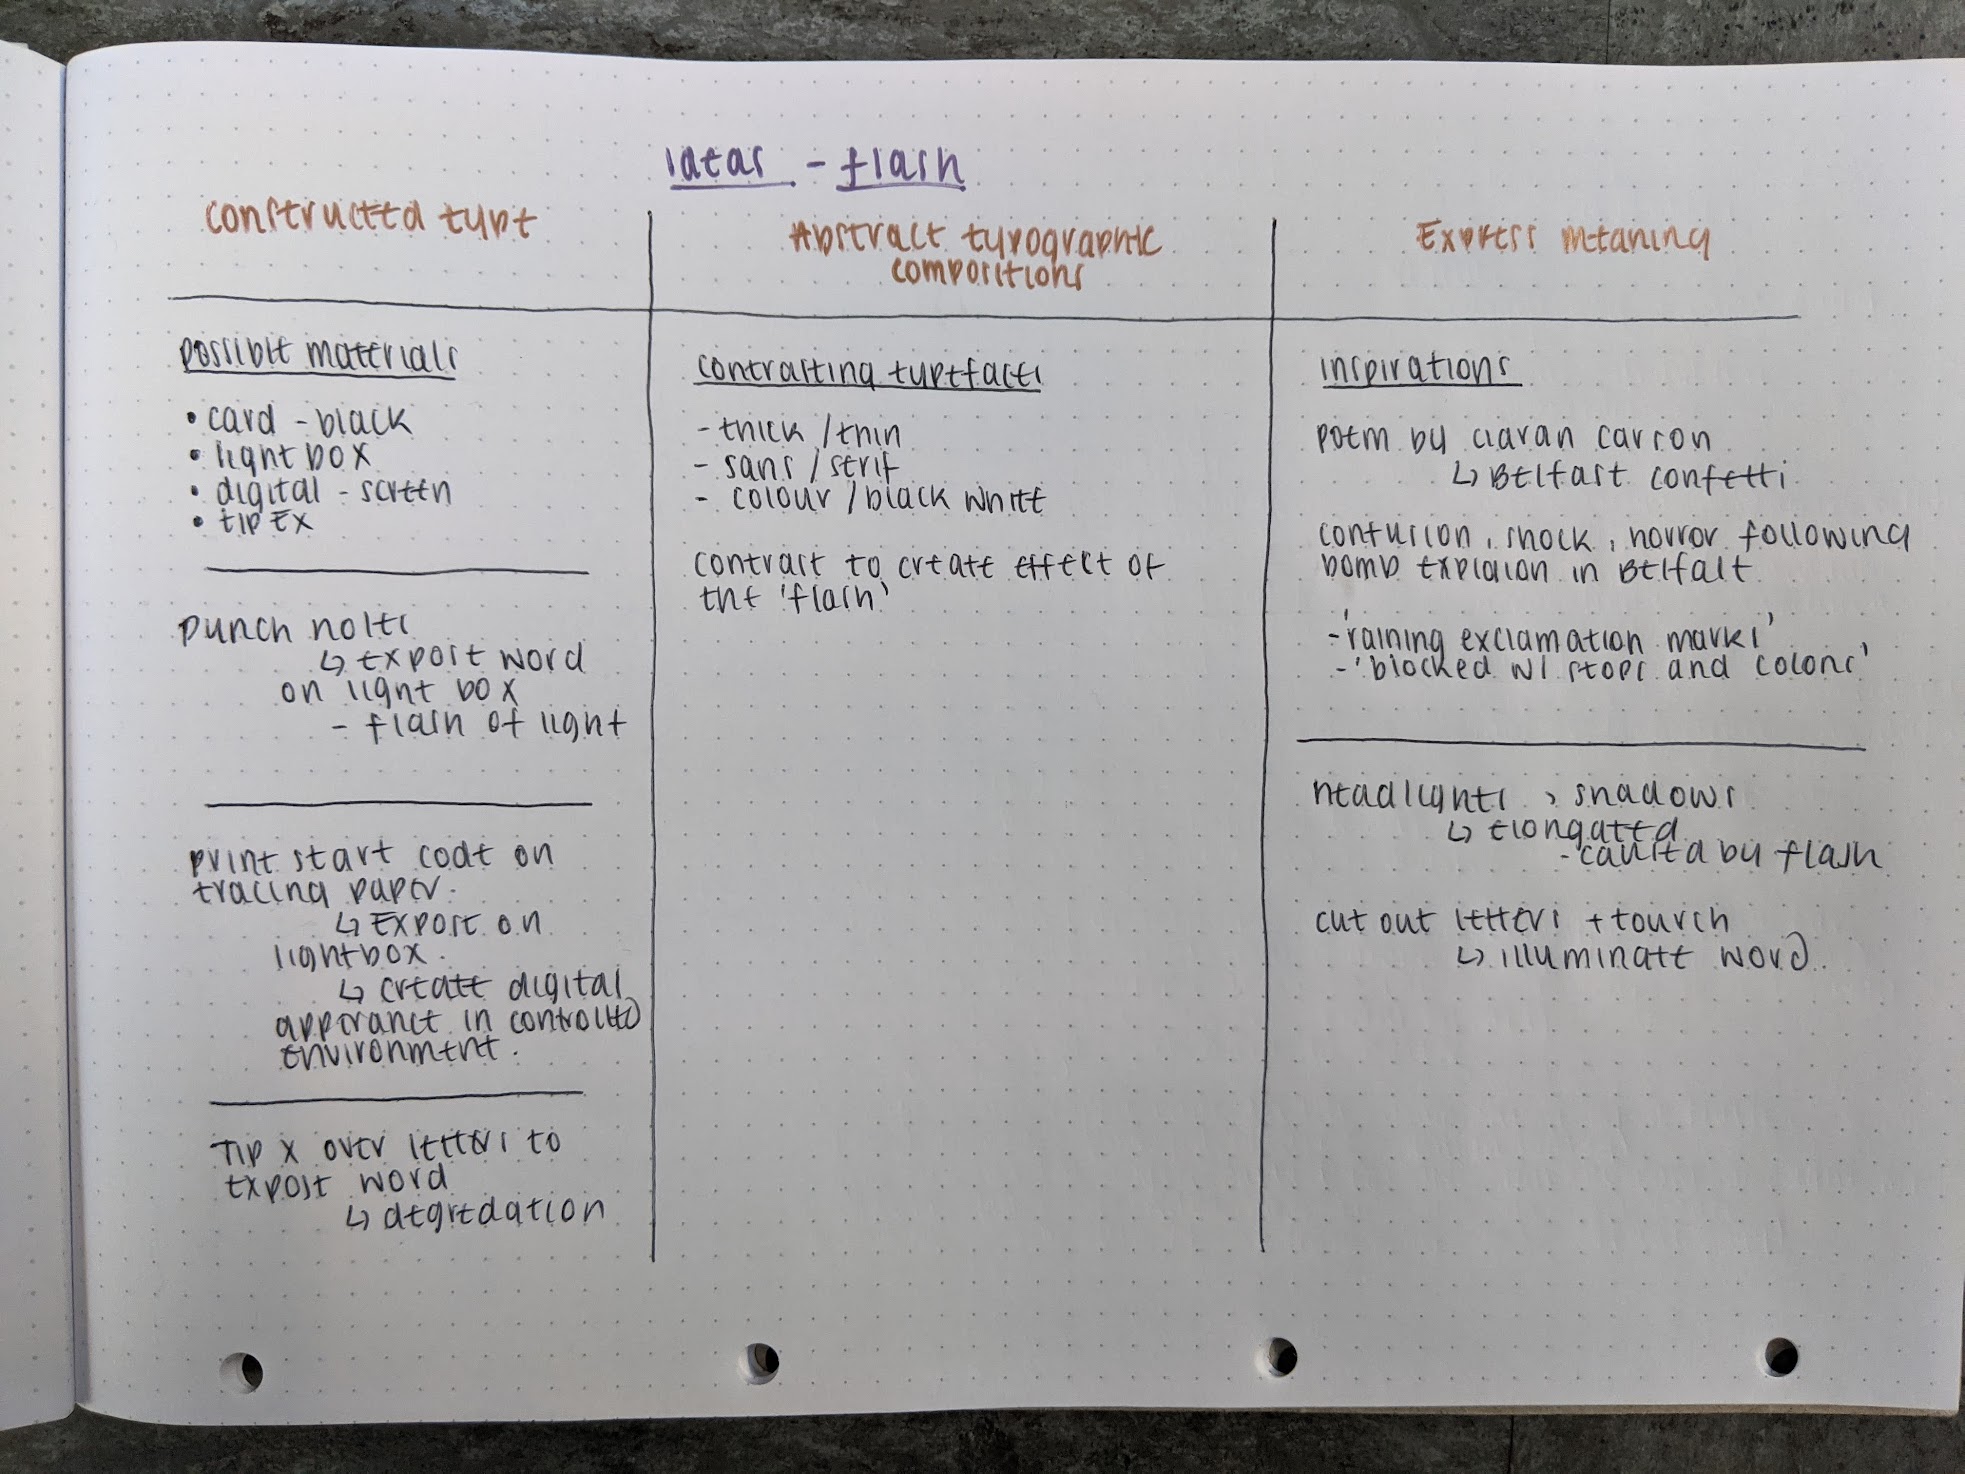 ideas - flash
constructed type
possible materials
• card - black
• light box
• digital - screen
• tip Ex
punch holes
↳ expose word
on light box
- flash of light
print start code on
tracing paper.
↳ Expose on
lightbox.
↳ create digital
apperance in controlled
environment.
Tip x over letters to
expose word
↳ degredation
Abstract typographic
compositions
contrasting typefaces
- thick / thin
- sans / serif
- colour / black white
contrast to create effect of
the 'flash'
Express meaning
inspirations
poem by ciaran carson
↳ Belfast confetti
confusion, shock, horror following
bomb explosion in Belfast
- 'raining exclamation marks'
- 'blocked w/ stops and colons'
headlights, shadows
↳ elongated
- caused by flash
cut out letters + tourch
↳ illuminate word